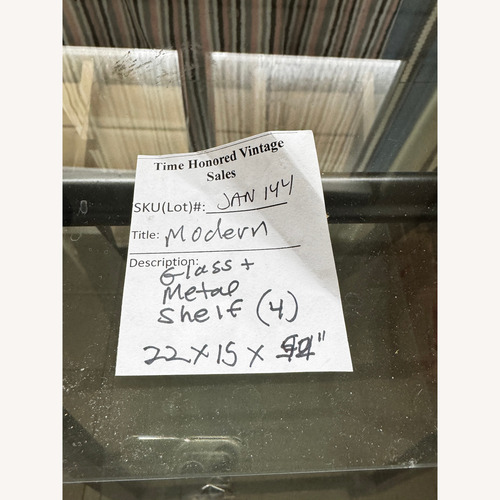 Time Honored Vintage
Sales
SKU(Lot)#: JAN 144
Title: Modern
Description:
Glass +
Metal
Shelf (4)
22 x 15 x